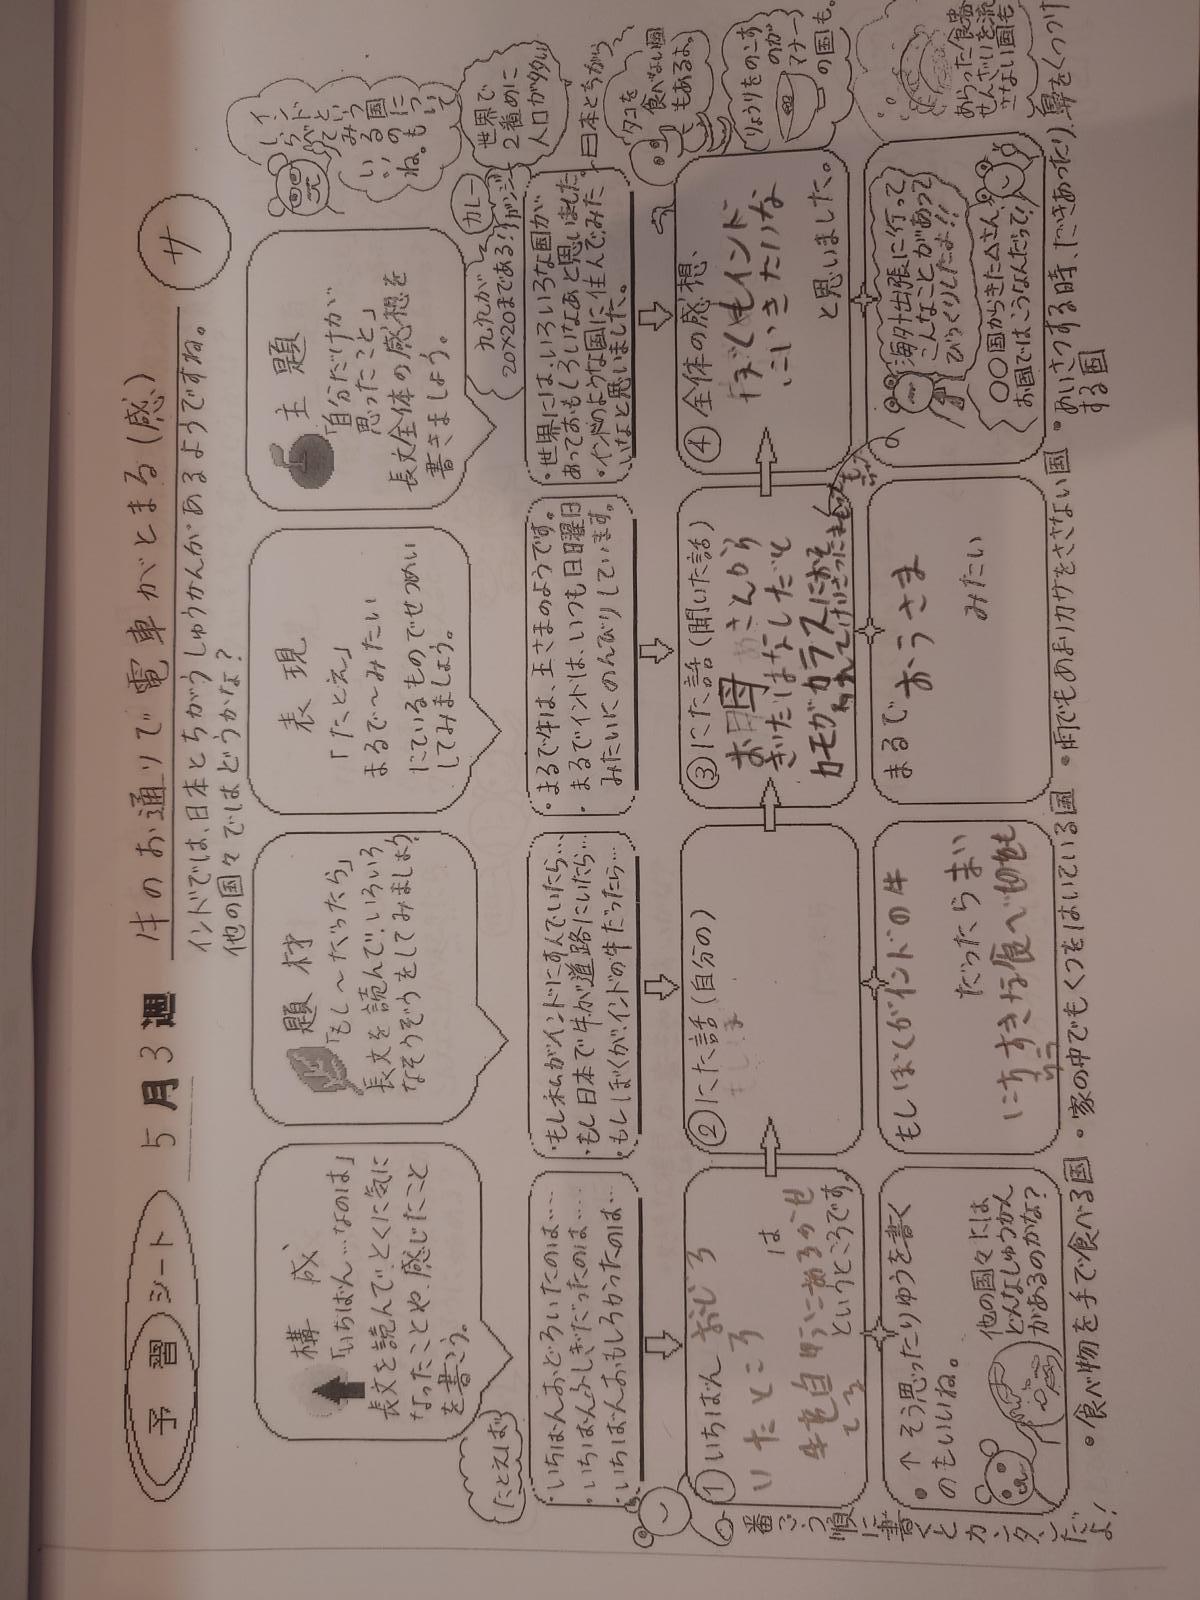 予習シート 5月3週 牛のお通りで電車がとまる(感) サ
インドでは、日本とちがうしゅうかんがあるようですね。
他の国々ではどうかな?
構成
「いちばん…なのは」
長文を読んで、とくに気に
なったことや、感じたこと
を書こう。
題材
「もし〜だったら」
長文を読んで、いろいろ
なそうぞうをしてみましょう
表現
「たとえ」
まるで〜みたい
にているものでせつめい
してみましょう。
主題
「自分だけが
思ったこと」
長文全体の感想を
書きましょう。
インドと
いう国に
ついて
しらべて
みるのも
いいね。
たとえば
カレー
世界で
2番めに
人口が多い
九九が
20×20まである!
・いちばんおどろいたのは…
・いちばんふしぎだったのは…
・いちばんおもしろかったのは…
・もし私がインドにすんでいたら…
・もし日本で牛が道路にいたら…
・もしぼくが、インドの牛だったら…
・まるで牛は、王さまのようです。
・まるでインドは、いつも日曜日
みたいにのんびりしています。
・世界には、いろいろな国が
あっておもしろいなあと思いました。
・インドのような国に住んでみた
いなと思いました。
日本とちがう
タコを
食べない国
もあるよ。
りょうりをのこす
のが
マナー
の国も。
①いちばん おどろ
いたところ は
というところです。
②にた話(自分の)
③にた話(聞いた話)
お母さんから
きいたはなしだと
カモがカラスにおそ
④全体の感想、
ぼくもインド
にいきたいな
と思いました。
●↑そう思ったりゆうを書く
のもいいね。
他の国々には
どんなしゅうかん
があるのかな?
もしぼくがインドの牛
だったら まい
にちすきな食べ物を
まるで おうさま
みたい
海外出張に行って
こんなことがあって
びっくりしたよ!!
○○国からきた△さん、
お国ではこうなんだって!
あらった食器
せんざいを流
さない国も
番ごう順に書くとカンタンだよ!
・食べ物を手で食べる国 ・家の中でもくつをはいている国 ・雨でもあまりカサをささない国 ・あいさつする時、だきあったり鼻をくっつけ
する国